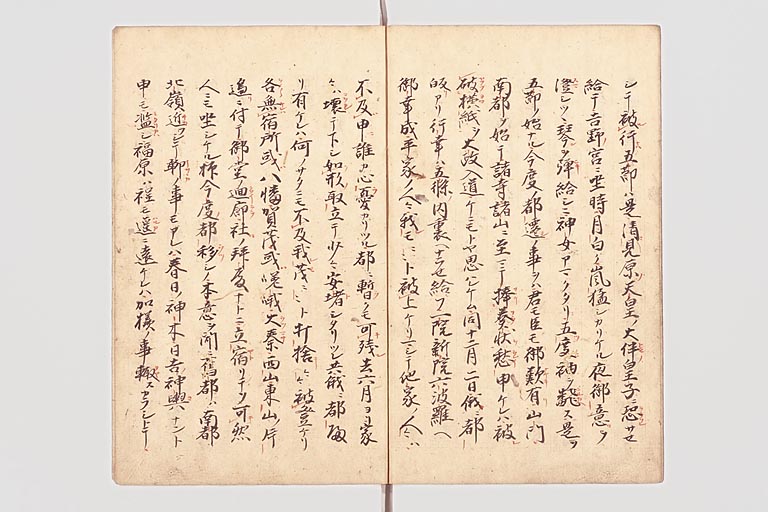 シテ被行五節ハ是清見原天皇ノ大伴皇子ニ恐サセ
給テ吉野宮ニ坐時月白ク嵐猛シカリケル夜御意ヲ
澄シツヽ琴ヲ弾給シニ神女アマクタリ五度袖ヲ翻ス是ヲ
五節ノ始ナル今度都遷ノ事ヲハ君モ臣モ御歎有山門
南都ヲ始テ諸寺諸山ニ至ニ捧奏状愁申ケレハ被
破横紙ヲ大政入道ケニモトヤ思ハレケム同十二月二日俄都
皈アリ行幸ハ五條ノ内裏ヘナセ給フ一院新院六波羅ヘ
御幸成平家ノ人々我モヽヽト被上ケリマシテ他家ノ人々ハ
不及申誰カ心憂カリツル都ニ暫クモ可残去六月ヨリ家
々ハ壊テトシ如形取立テ少々安堵シタリツレ共俄ニ都皈
リ有ケレハ何ノサタニモ不及我茂ヽヽト打捨々々被登ケリ
各無宿所或ハ八幡賀茂或嵯峨大秦西山東山ノ片
邊ニ付テ御堂ノ廻廊社ノ拝殿ナトニ立宿リテソ可然
人ニモ坐シケル抑今度都移シノ本意ヲ聞ニ舊都ハ南都
北嶺近クシテ聊ノ事モアレハ春日ノ神木日吉神輿ナント
申テ濫シ福原ハ程モ遥ニ遠ケレハ加様ノ事輙スアラシトテ